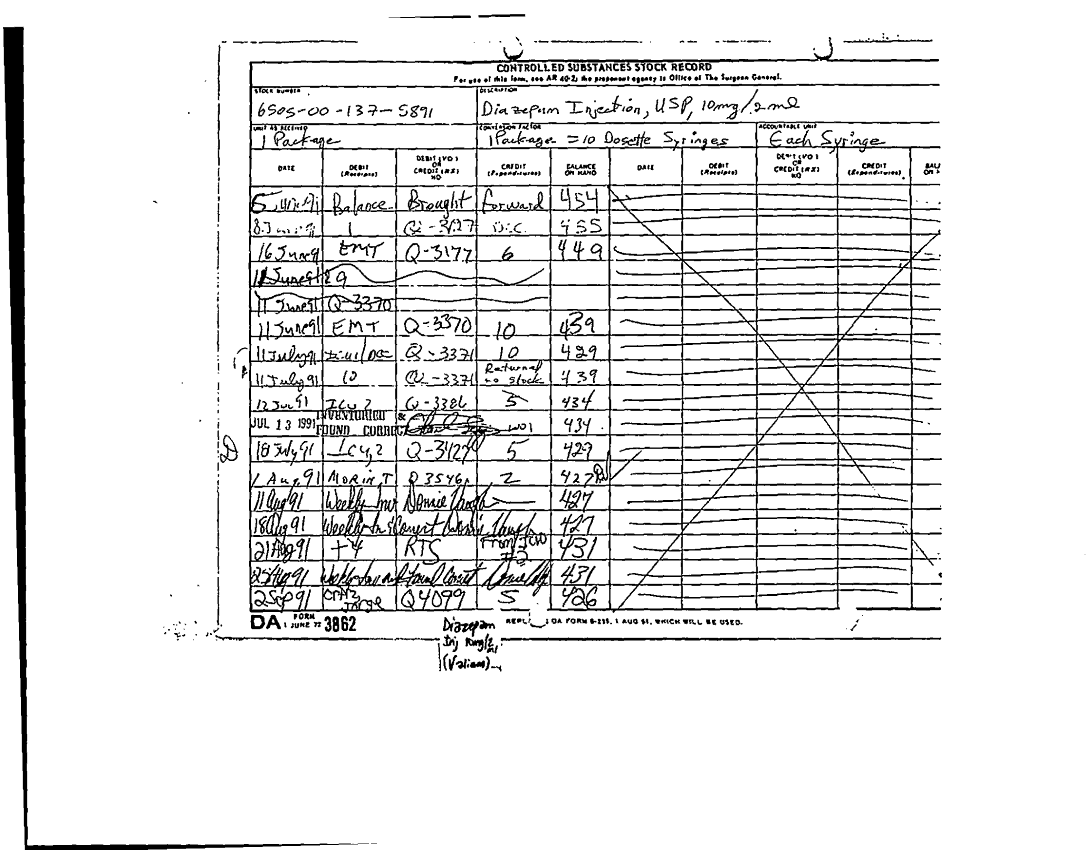 CONTROLLED SUBSTANCES STOCK RECORD
For use of this form, see AR 40-2; the proponent agency is Office of The Surgeon General.
STOCK NUMBER DESCRIPTION
6505-00-137-5891 Diazepam Injection, USP, 10mg/2ml
UNIT AS RECEIVED CONVERSION FACTOR ACCOUNTABLE UNIT
1 Package 1 Package = 10 Dosette Syringes Each Syringe
DATE DEBIT (Receipts) DEBIT (VO) OR CREDIT (RX) NO CREDIT (Expenditures) BALANCE ON HAND DATE DEBIT (Receipts) DEBIT (VO) OR CREDIT (RX) NO CREDIT (Expenditures)
Balance Brought forward 454
1 455
16 June 91 EMT Q-3177 6 449
June 91 29
11 June 91 Q-3370
11 June 91 EMT Q-3370 10 439
11 July 91 Q-3371 10 429
11 July 91 10 Q-3371 Returned to stock 439
12 Jul 91 ICU 2 Q-3386 5 434
JUL 13 1991 INVENTORIED & FOUND CORRECT 434
18 July 91 ICU 2 Q-3427 5 429
1 Aug 91 Morin, T Q3546 2 427
11 Aug 91 Weekly Inv Donnie 427
18 Aug 91 Weekly Inv Correct 427
21 Aug 91 +4 RTS From ICW #3 431
25 Aug 91 Weekly Inv and found Correct 431
2 Sep 91 Cruz Jorge Q4099 5 426
DA FORM 1 JUNE 72 3862 DA FORM 8-235, 1 AUG 51, WHICH WILL BE USED.
Diazepam
Inj 10mg/2ml
(Valium)